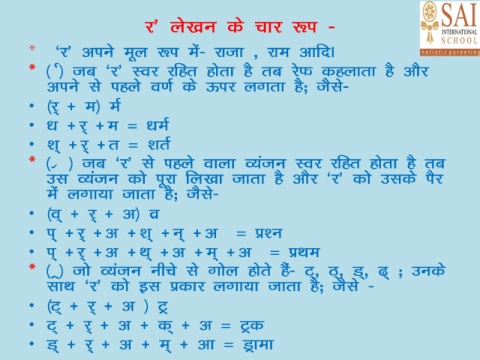 र’ लेखन के चार रूप -
SAI
INTERNATIONAL
SCHOOL
holistic parenting
* ‘र’ अपने मूल रूप में- राजा , राम आदि।
* (र्) जब ‘र’ स्वर रहित होता है तब रेफ कहलाता है और
अपने से पहले वर्ण के ऊपर लगता है; जैसे-
• (र् + म) र्म
• ध +र् +म = धर्म
• श् +र् +त = शर्त
* (्र) जब ‘र’ से पहले वाला व्यंजन स्वर रहित होता है तब
उस व्यंजन को पूरा लिखा जाता है और ‘र’ को उसके पैर
में लगाया जाता है; जैसे-
• (व् + र् + अ) व्र
• प् +र् +अ +श् +न् +अ = प्रश्न
• प् +र् +अ +थ् +अ +म् +अ = प्रथम
* (्र) जो व्यंजन नीचे से गोल होते हैं- ट्, ठ्, ड्, ढ् ; उनके
साथ ‘र’ को इस प्रकार लगाया जाता है; जैसे -
• (ट् + र् + अ ) ट्र
• ट् + र् + अ + क् + अ = ट्रक
• ड् + र् + अ + म् + आ = ड्रामा